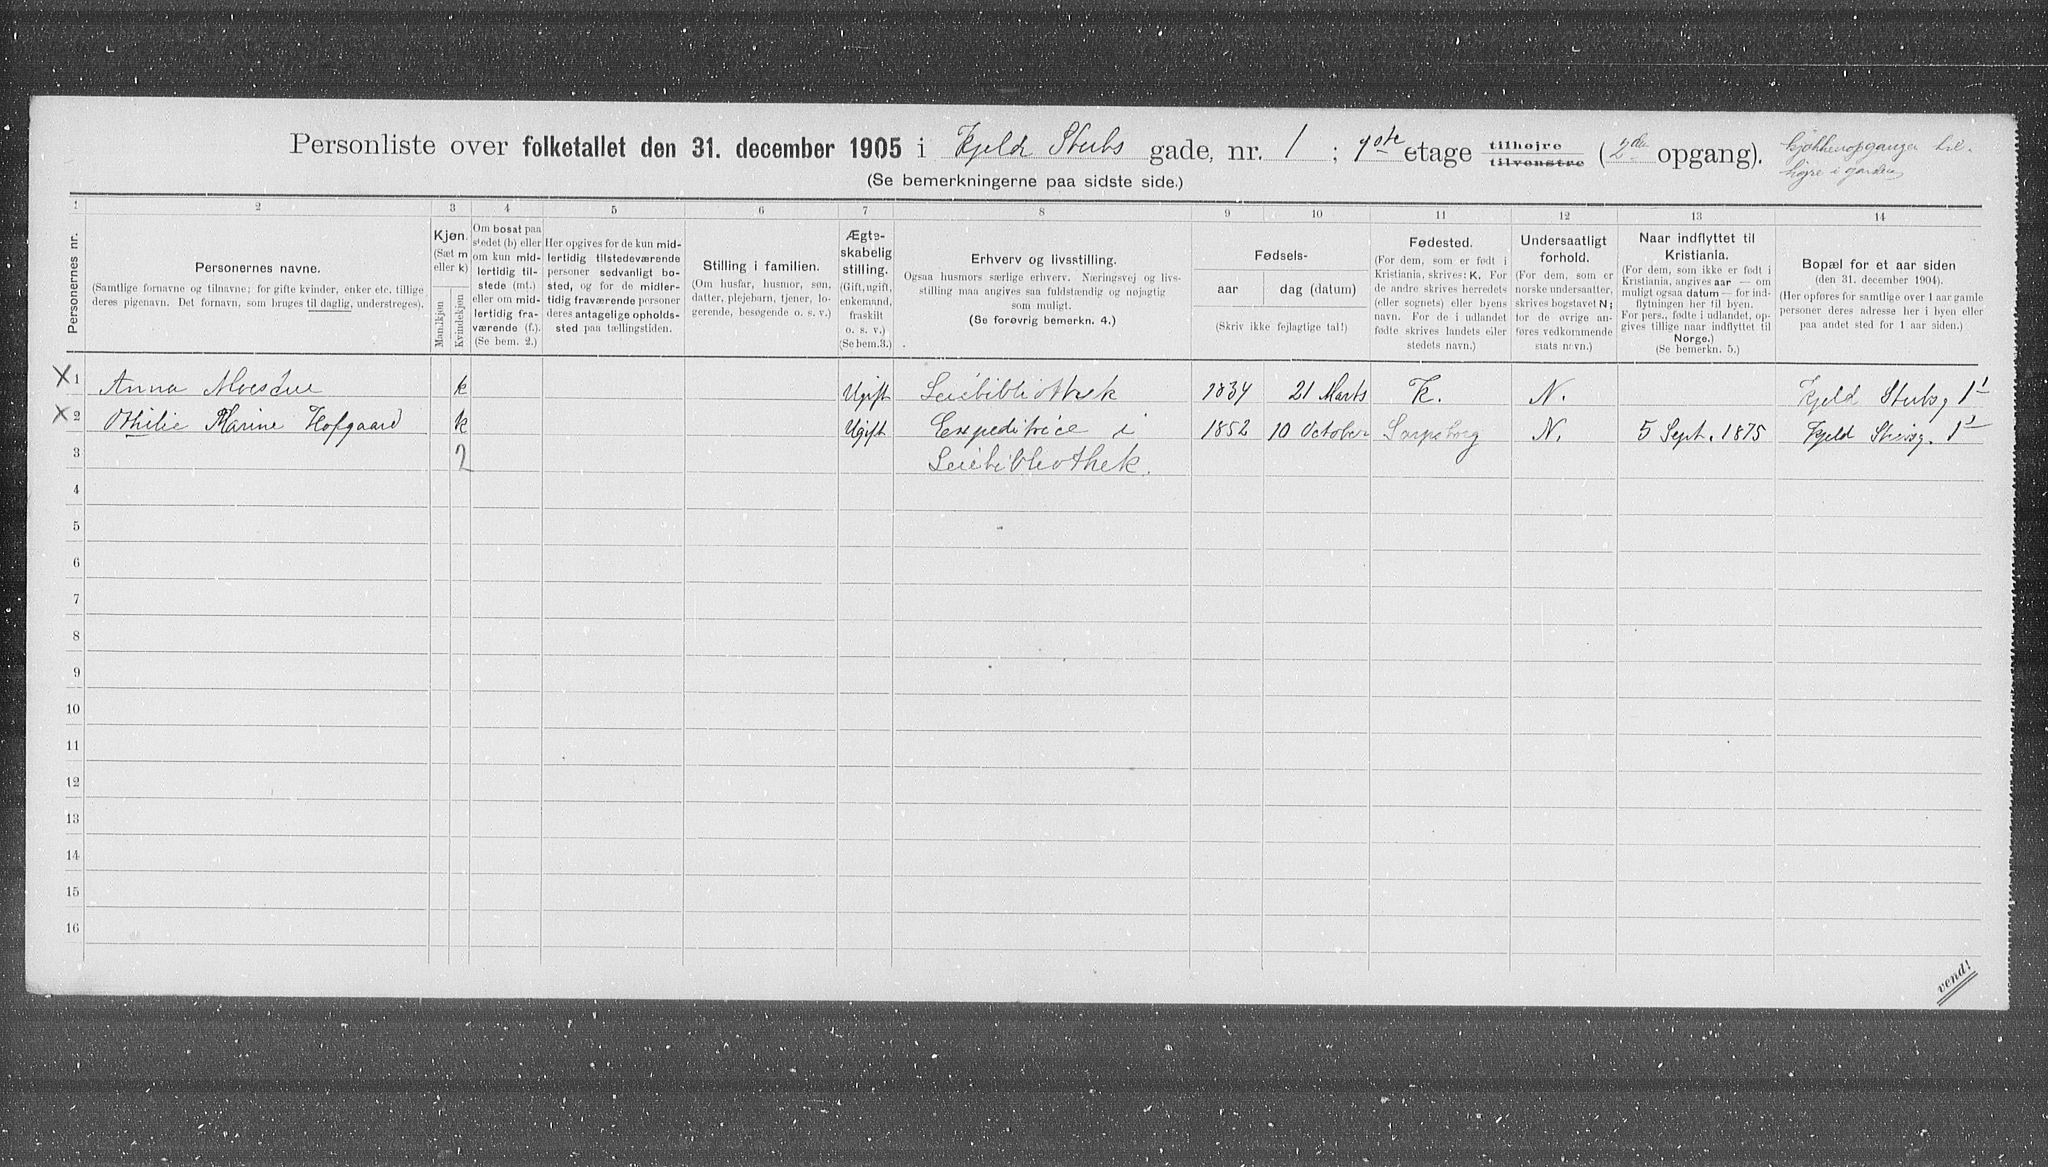 Personliste over folketallet den 31. december 1905 i Kjeld Stubs gade, nr. 1 ; 1ste etage tilhøjre tilvenstre (2den opgang). kjøkkenopgangen til
højre i gaarden
(Se bemerkningerne paa sidste side.)
1 2 3 4 5 6 7 8 9 10 11 12 13 14
Personernes nr.
Personernes navne.
(Samtlige fornavne og tilnavne; for gifte kvinder, enker etc. tillige
deres pigenavn. Det fornavn, som bruges til daglig, understreges).
Kjøn.
(Sæt m
eller k)
Mandkjøn
Kvindekjøn
Om bosat paa
stedet (b) eller
om kun mid-
lertidig til-
stede (mt.)
eller om mid-
lertidig fra-
værende (f.).
(Se bem. 2.)
Her opgives for de kun mid-
lertidig tilstedeværende
personer sedvanligt bo-
sted, og for de midler-
tidig fraværende personer
deres antagelige opholds-
sted paa tællingstiden.
Stilling i familien.
(Om husfar, husmor, søn,
datter, plejebarn, tjener, lo-
gerende, besøgende o. s. v.)
Ægte-
skabelig
stilling.
(Gift, ugift,
enkemand,
fraskilt
o. s. v.)
(Se bem. 3.)
Erhverv og livsstilling.
Ogsaa husmors særlige erhverv. Næringsvej og livs-
stilling maa angives saa fuldstændig og nøjagtig
som muligt.
(Se forøvrig bemerkn. 4.)
Fødsels-
aar dag (datum)
(Skriv ikke fejlagtige tal!)
Fødested.
(For dem, som er født i
Kristiania, skrives: K. For
de andre skrives herredets
(eller sognets) eller byens
navn. For de i udlandet
fødte skrives landets eller
stedets navn.)
Undersaatligt
forhold.
(For dem, som er
norske undersaatter,
skrives bogstavet N;
for de øvrige an-
føres vedkommende
stats navn.)
Naar indflyttet til
Kristiania.
(For dem, som ikke er født i
Kristiania, angives aar — om
muligt ogsaa datum — for ind-
flytningen her til byen.
For pers., fødte i udlandet, op-
gives tillige naar indflyttet til
Norge.)
(Se bemerkn. 5.)
Bopæl for et aar siden
(den 31. december 1904).
(Her opføres for samtlige over 1 aar gamle
personer deres adresse her i byen eller
paa andet sted for 1 aar siden.)
X 1 Anna k Ugift Leiebibliothek 1834 21 Marts K. N. Kjeld Stubsg 1 1
X 2 Othilie Marine Hofgaard k Ugift Expeditrice i 1852 10 October Sarpsborg N. 5 Sept. 1875 Kjeld Stubsg. 1 1
3 2 Leiebibliothek.
4
5
6
7
8
9
10
11
12
13
14
15
16
vend!